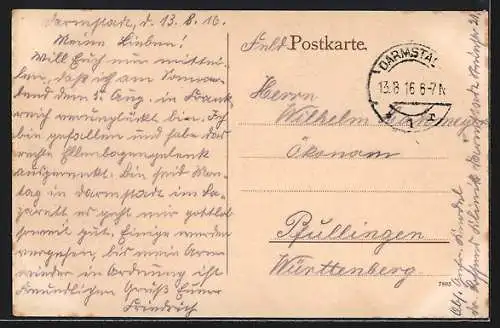 Darmstadt, d. 13.8.16.
Meine Lieben!
Will Euch nur mittei-
len, daß ich am Sonna-
bend den 5. Aug. in Frank-
reich verunglückt bin. Ich
bin gefallen und habe das
rechte Ellenbogengelenk
ausgerenkt. Bin seid Mon-
tag in Darmstadt im La-
zarett es geht mir gottlob
soweit gut. Einige werden
vergehen, bis mein Arm
wieder in Ordnung ist.
Freundlichen Gruß Euer
Friedrich
Feld Postkarte.
DARMSTA
13.8 16 6-7N
* 1
Herrn
Wilhelm
Ökonom
Pfullingen
Württemberg
7903
Abs.
Klinik Darmstadt